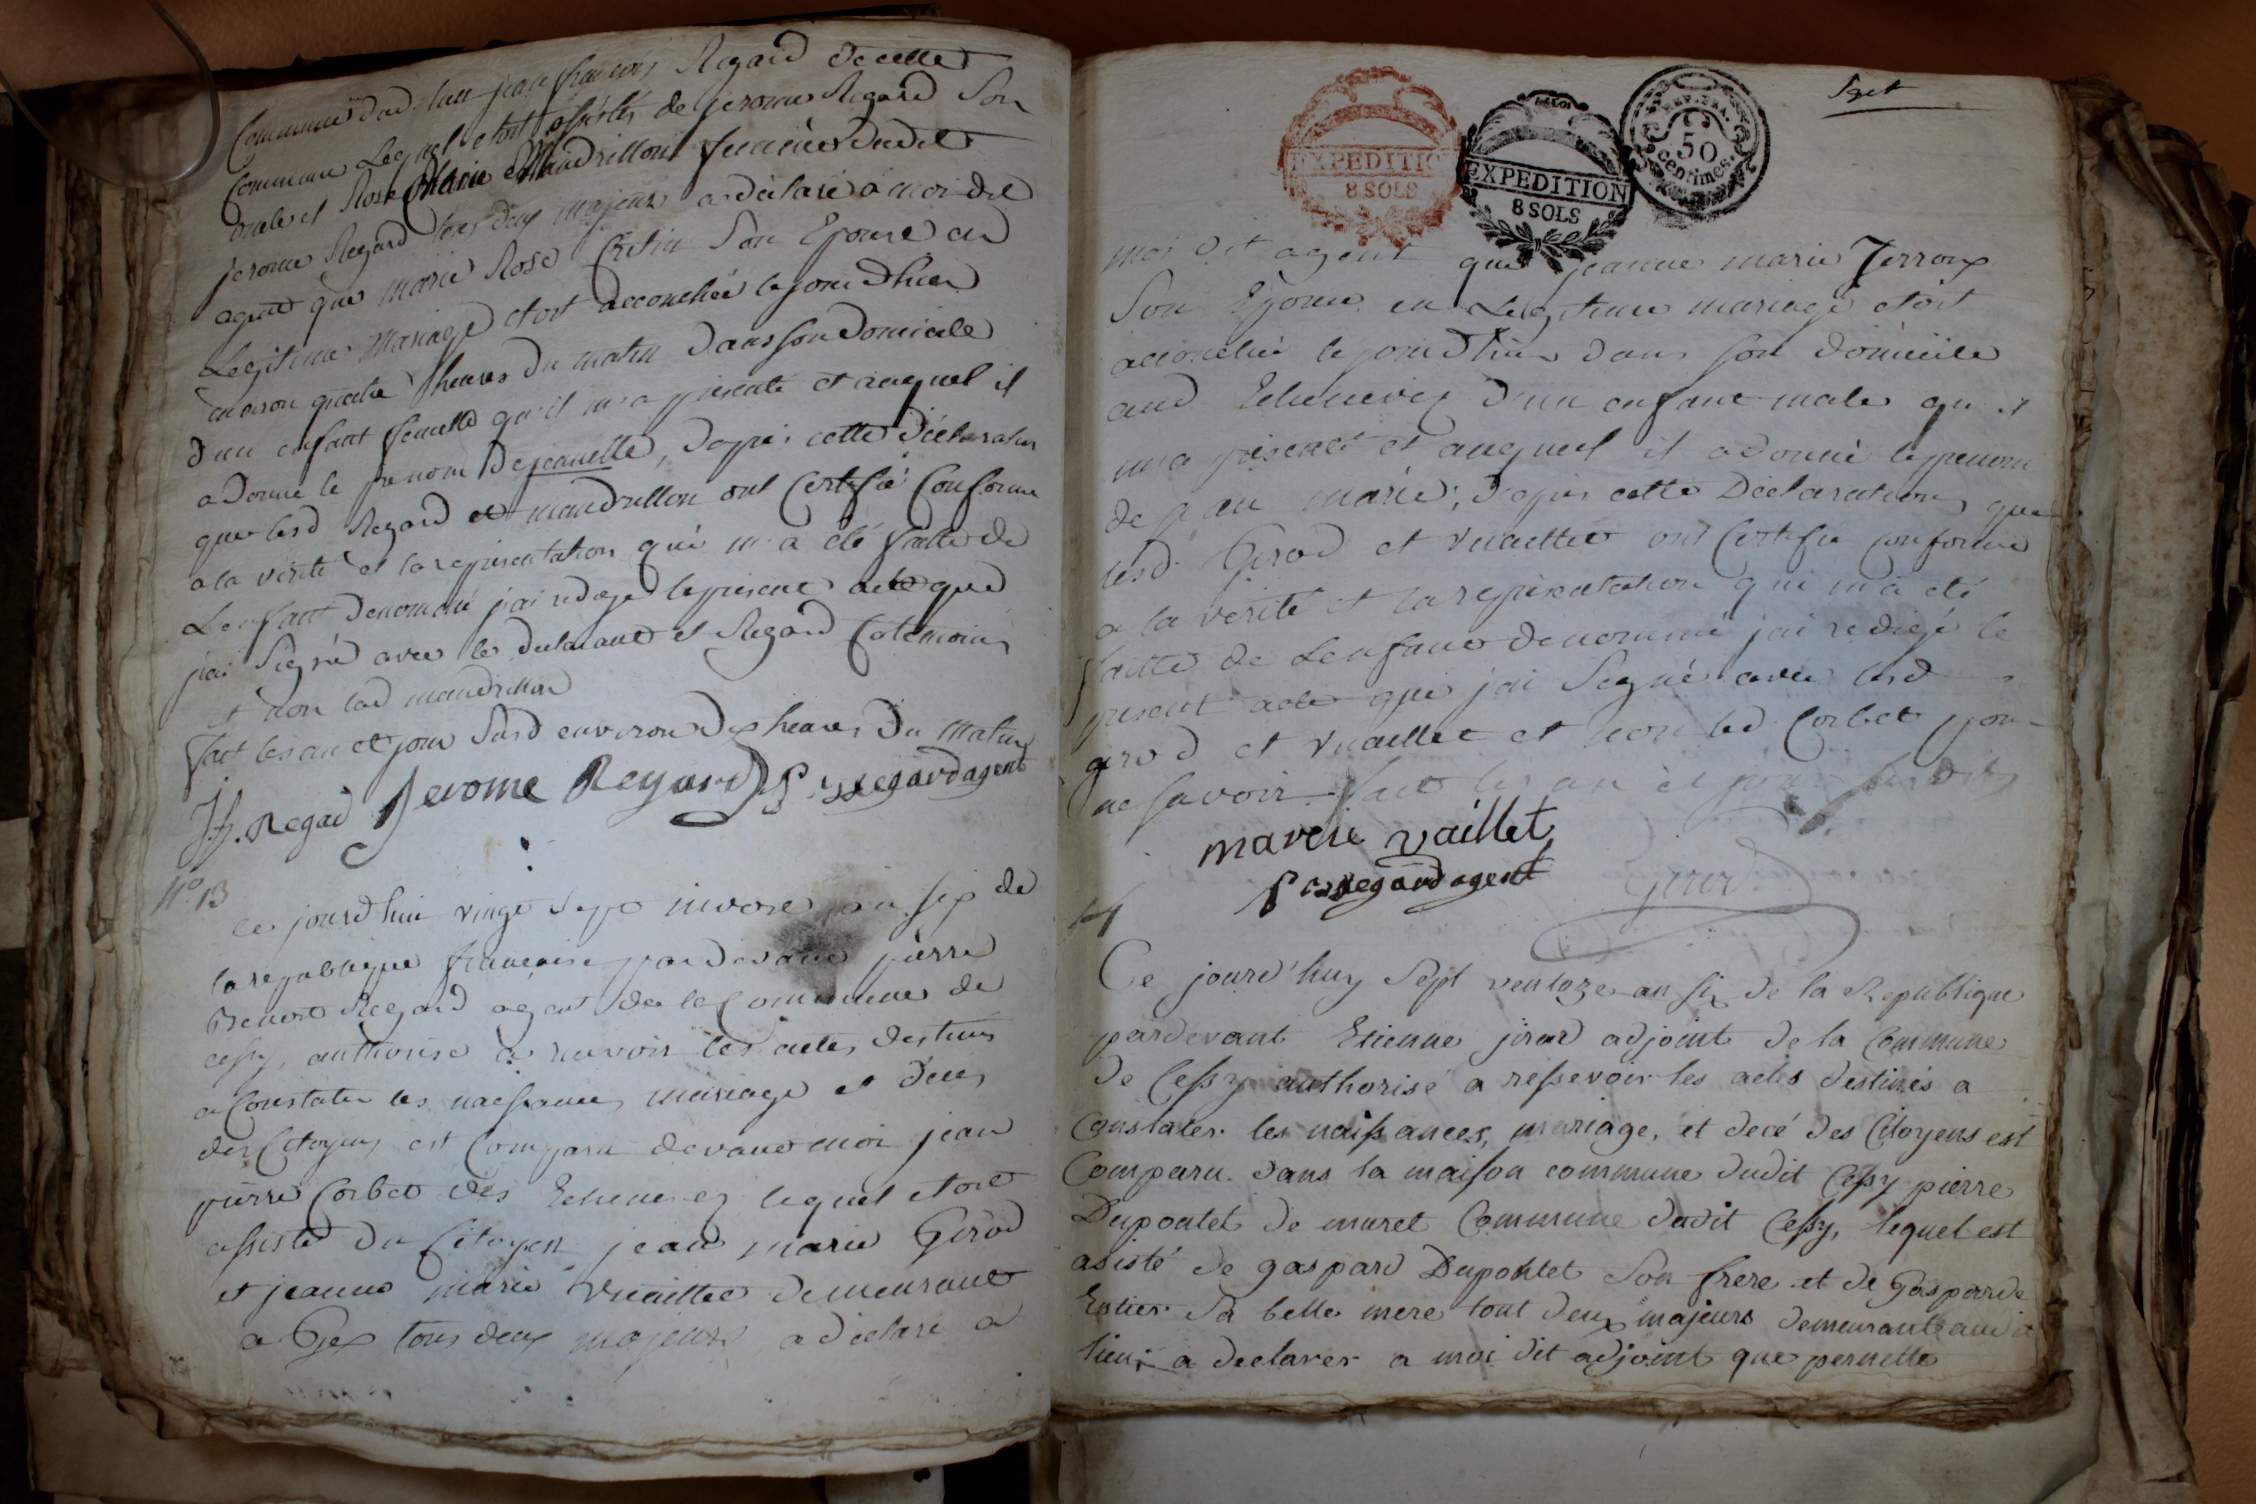 Commune dud. lieu jean françois Regard de cette
Commune Lequel etoit assistés de jerome Regard son
oncle et Rose Marie Mandrillon femme dudit
jerome Regard tous deux majeurs a déclaré a moi dit
agent que marie Rose Cretin son Epouse en
Legitime Mariage etoit accouchée le jour d'hier
environ quatre heures du matin dans son domicile
d'un enfant femelle qu'il m'a présenté et auquel il
a donné le prenom de jeanette, d'apres cette declaration
que lesd Regard et mandrillon ont Certifié Conforme
a la verité et la représentation qui m'a été faitte de
L'enfant denommé j'ai redigé le present acte que
j'ai Signé avec le declarant et Regard temoin
et non lad mandrillon
fait les an et jour susd environ dix heures du matin
J. f. Regad Jerome Regard P. B. Regard agent
N.º 13
Ce jourd'hui vingt Sept nivose an six de
la republique francaise pardevant pierre
Benoit Regard agent de la Commune de
cessy, authorisé a recevoir les actes destinés
a Constater les naissances, mariage et déces
des Citoyens est Comparu devant moi jean
pierre Corbet des Echenevez lequel etoit
assisté du Citoyen jean marie Girod
et jeanne marie Vuaillet demeurant
a Gex tous deux majeurs a déclaré a
Sept
EXPEDITION
8 SOLS
EXPEDITION
8 SOLS
REP. FRA.
50
centimes
moi dit agent que jeanne marie Terroux
Son Epouse en Legitime mariage etoit
accouchée le jour d'hier dans son domicile
aud Echenevez d'un enfant male qu'il
m'a présenté et auquel il a donné le prenom
de jean marie; d'apres cette Déclaration, que
lesd. Girod et Vuaillet ont Certifié conforme
a la verité et la représentation qui m'a été
faitte de L'enfant denommé j'ai redigé le
present acte que j'ai Signé avec lesd
girod et Vuaillet et non led Corbet pour
ne savoir. fait les an et jour susdits
marie vaillet
P B Regard agent Girod
14
Ce jourd'huy Sept ventoze an six de la Republique
pardevant Etienne jirad adjoint de la Commune
de Cessy authorisé a ressevoir les actes destinés a
Constater les naissances, mariage, et decé des Citoyens est
Comparu dans la maison commune dudit Cessy pierre
Dupontet de muret Commune dudit Cessy, lequel est
asisté de gaspard Dupontet Son frere et de Gasparde
Estier Sa belle mere tout deux majeurs demeurant audit
lieu; a declarer a moi dit adjoint que pernette